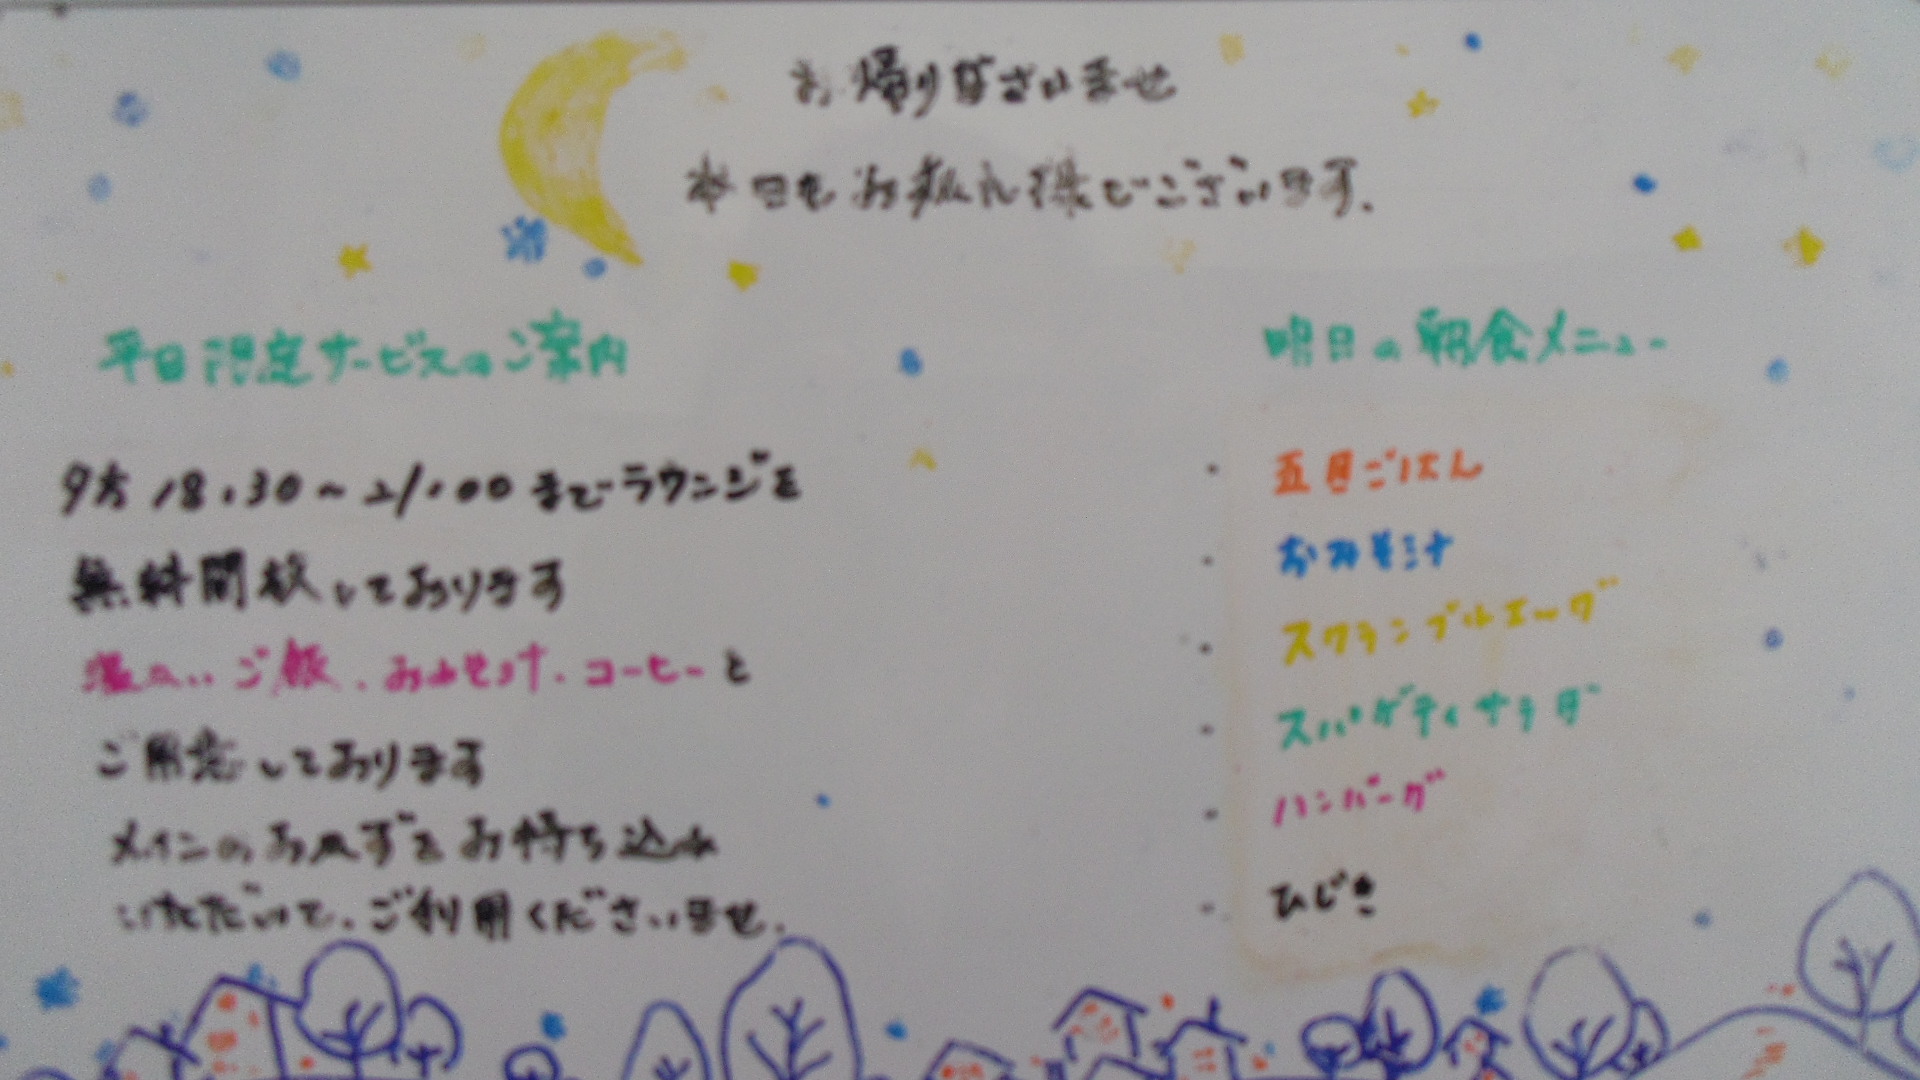 お帰りなさいませ
本日もお疲れ様でございます.
平日限定サービスのご案内
夕方 18:30～21:00 までラウンジを
無料開放しております
温かいご飯、おみそ汁、コーヒーと
ご用意しております
メインのおかずをお持ち込み
いただいて、ご利用くださいませ.
明日の朝食メニュー
・五目ごはん
・おみそ汁
・スクランブルエッグ
・スパゲティサラダ
・ハンバーグ
・ひじき